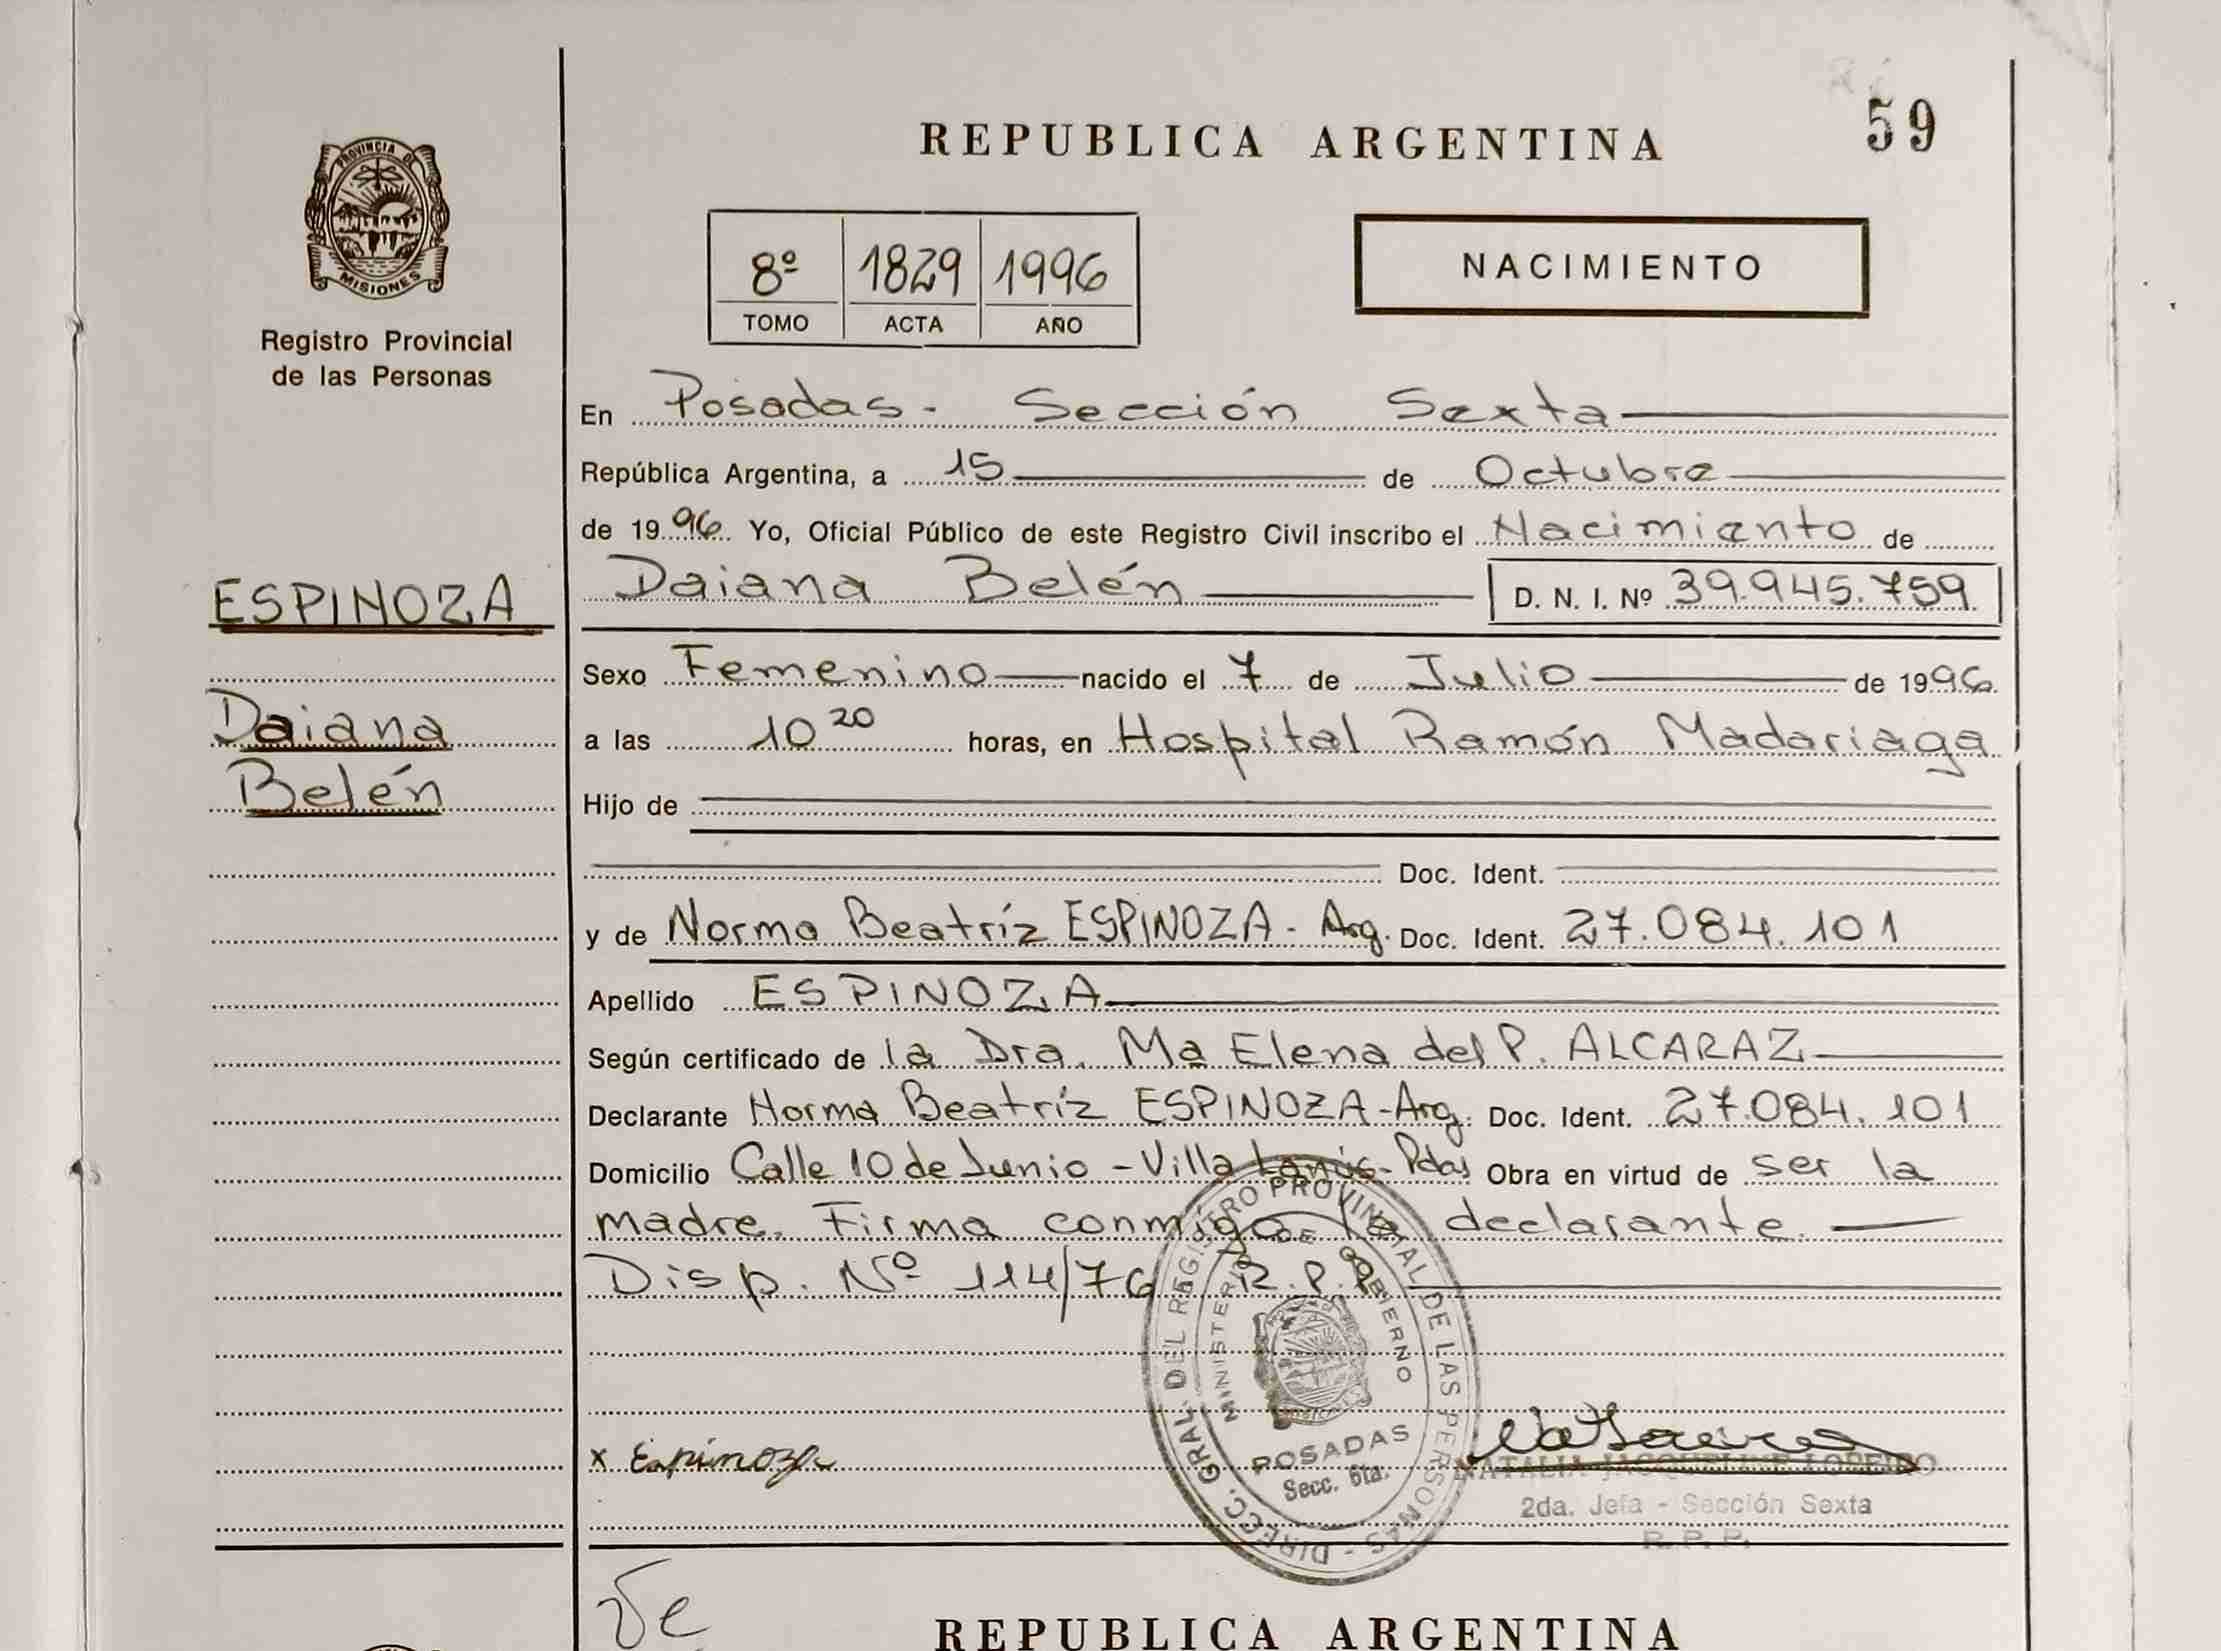 59
REPUBLICA ARGENTINA
PROVINCIA DE
MISIONES
Registro Provincial
de las Personas
8º 1829 1996
TOMO ACTA AÑO
NACIMIENTO
En Posadas - Sección Sexta
República Argentina, a 15 de Octubre
de 1996 Yo, Oficial Público de este Registro Civil inscribo el Nacimiento de
ESPINOZA
Daiana Belén D. N. I. Nº 39.945.759
Sexo Femenino nacido el 7 de Julio de 1996
Daiana
Belén
a las 10 20 horas, en Hospital Ramón Madariaga
Hijo de
Doc. Ident.
y de Norma Beatríz ESPINOZA - Arg. Doc. Ident. 27.084.101
Apellido ESPINOZA
Según certificado de la Dra. Mª Elena del P. ALCARAZ
Declarante Norma Beatríz ESPINOZA - Arg. Doc. Ident. 27.084.101
Domicilio Calle 10 de Junio - Villa Lanús - Pdas Obra en virtud de ser la
madre. Firma conmigo la declarante.
Disp. Nº 114/76 R.P.P.
DIRECC. GRAL. DEL REGISTRO PROVINCIAL DE LAS PERSONAS -
MINISTERIO DE GOBIERNO
POSADAS
Secc. 6ta.
x Espinoza
NATALIA JACQUELINE
2da. Jefa - Sección Sexta
R. P. P.
REPUBLICA ARGENTINA